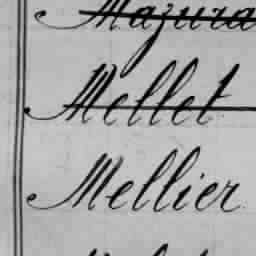 Mazura
Mellet
Mellier